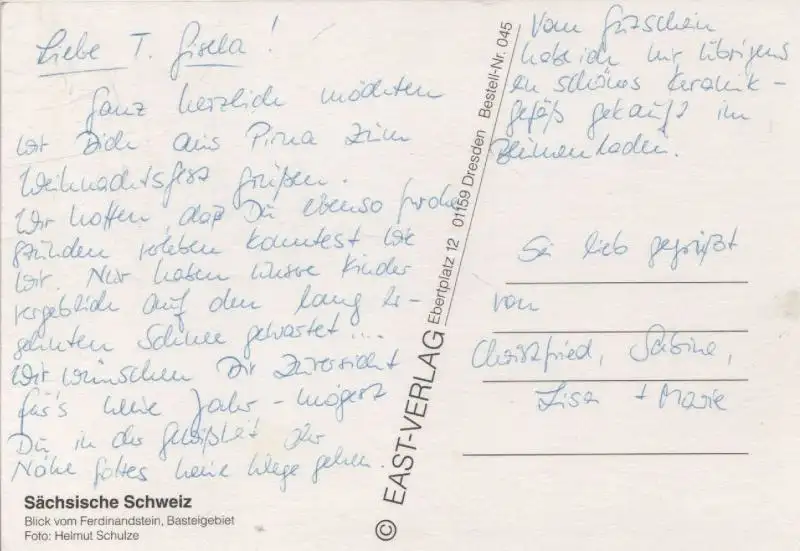 Liebe T. Gisela!
Ganz herzlich möchten
wir Dich aus Pirna zum
Weihnachtsfest grüßen.
Wir hoffen, daß Du ebenso frohe
Stunden erleben konntest wie
wir. Nur haben unsere Kinder
vergeblich auf den lang er-
sehnten Schnee gewartet ...
Wir wünschen Dir Zuversicht
für's neue Jahr - mögest
Du in der Gewißheit der
Nähe Gottes neue Wege gehen.
Sächsische Schweiz
Blick vom Ferdinandstein, Basteigebiet
Foto: Helmut Schulze
© EAST-VERLAG Ebertplatz 12 01159 Dresden Bestell-Nr. 045
Vom Gutschein
habe ich mir übrigens
ein schönes Keramik-
gefäß gekauft im
Blumenladen.
Sei lieb gegrüßt
von
Christfried, Sabine,
Lisa + Marie